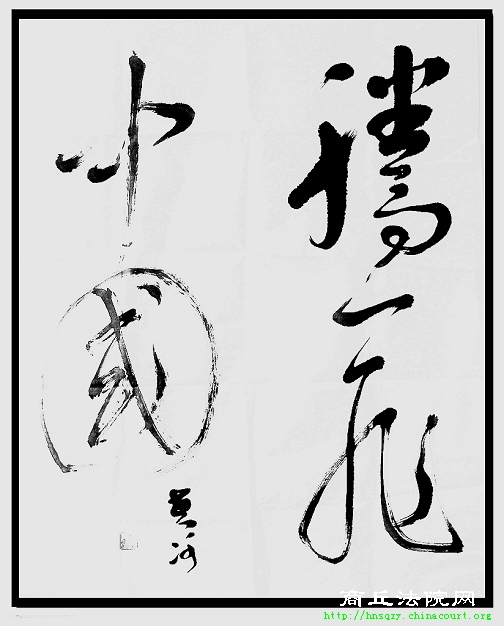 騰飛
中國
商丘法院网
http://hnsqzy.chinacourt.org